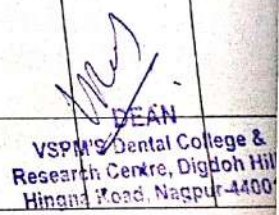 DEAN
VSPM'S Dental College &
Research Centre, Digdoh Hil
Hingna Road, Nagpur-4400